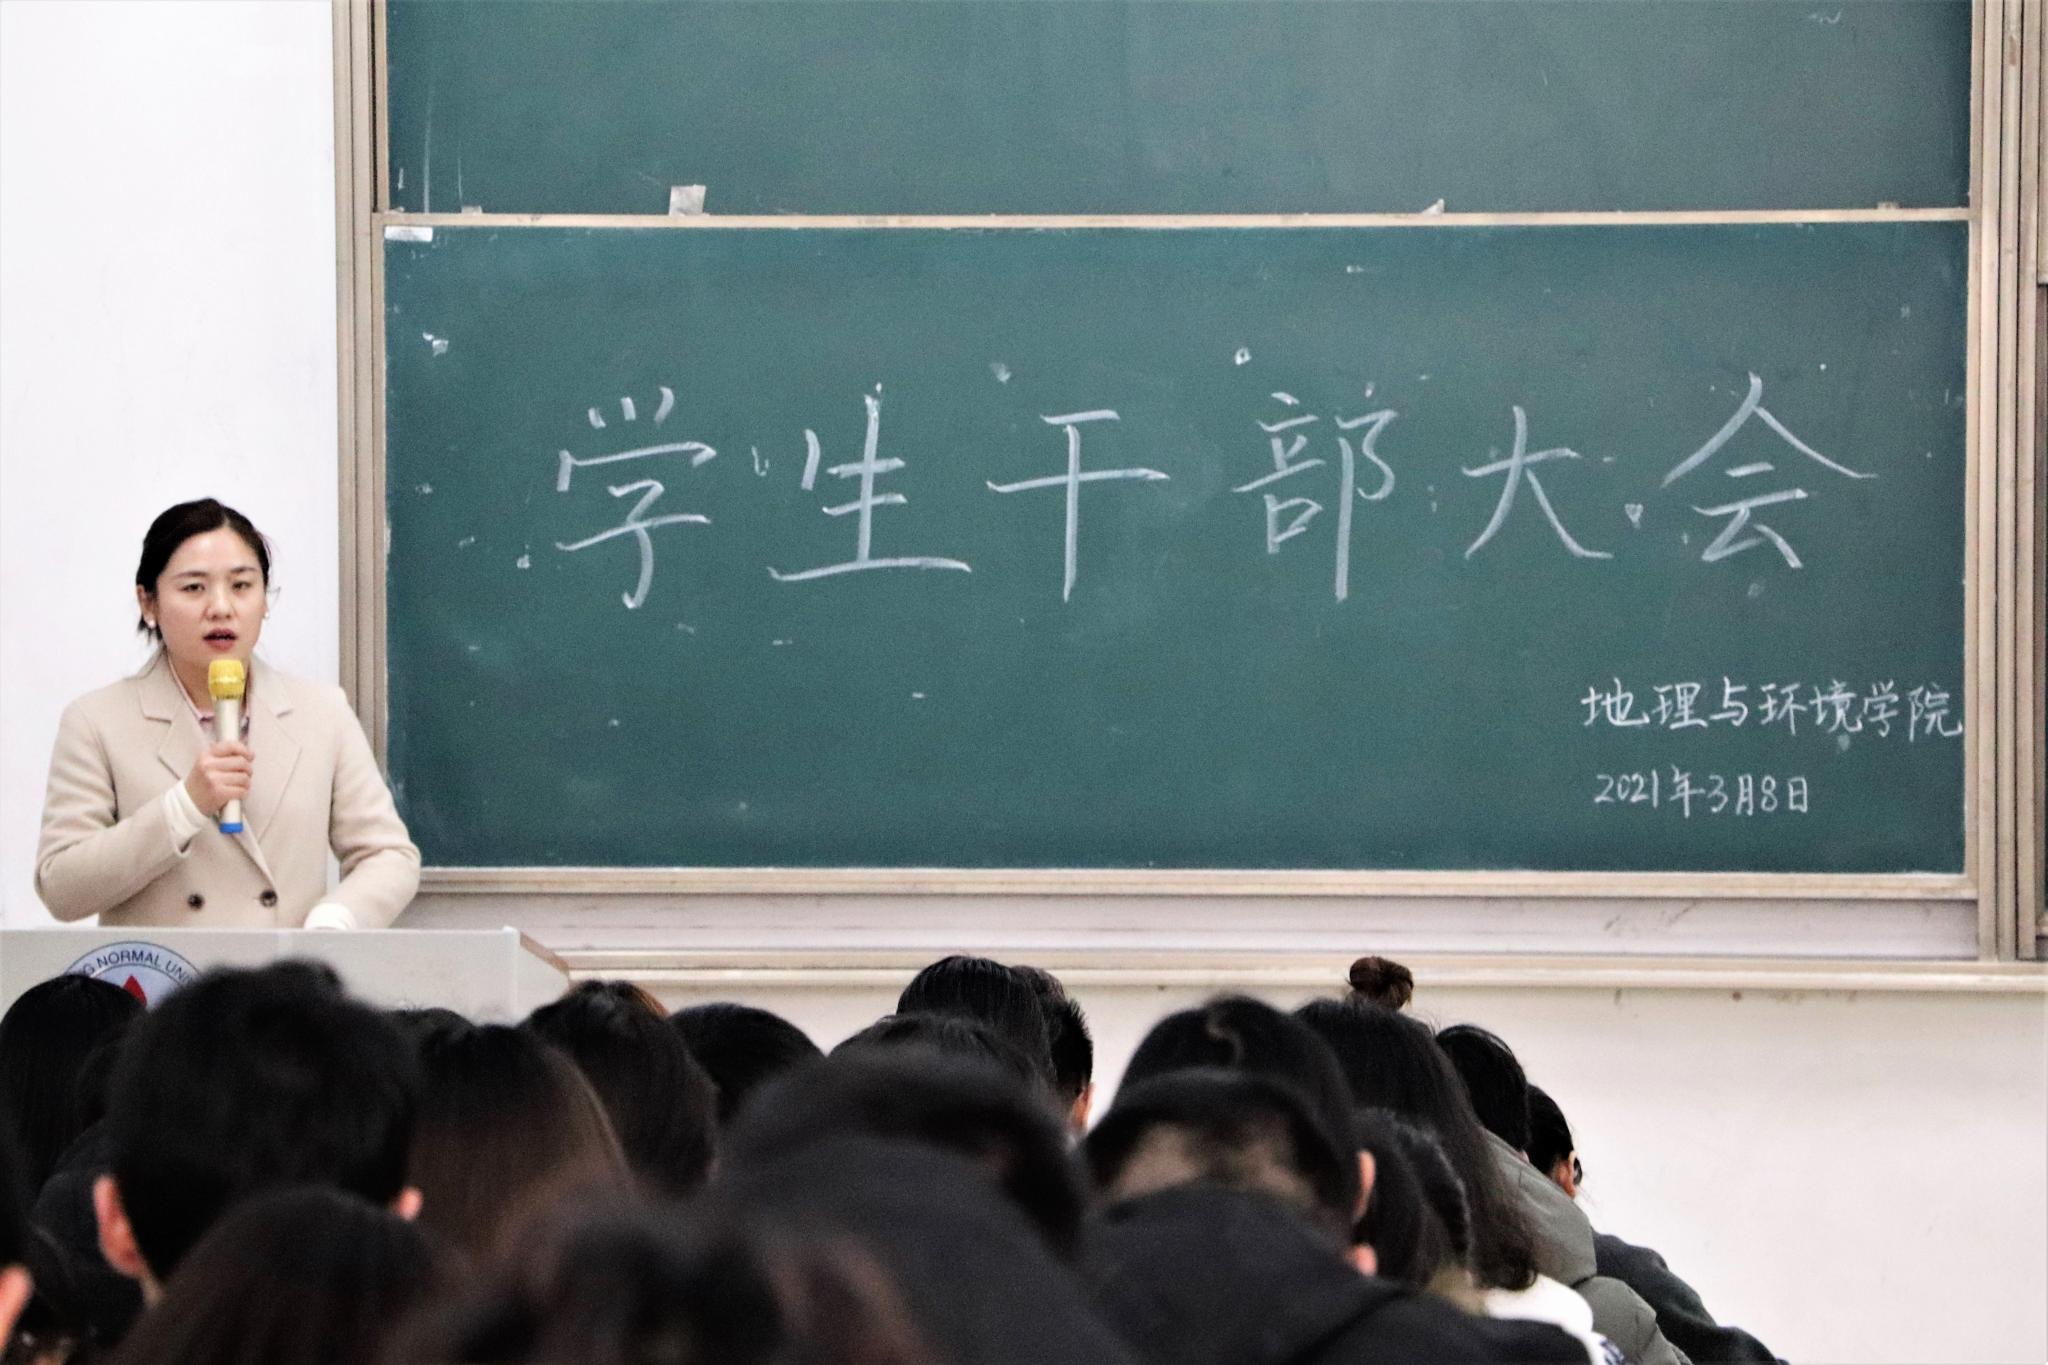 学生干部大会
地理与环境学院
2021年3月8日
NORMAL